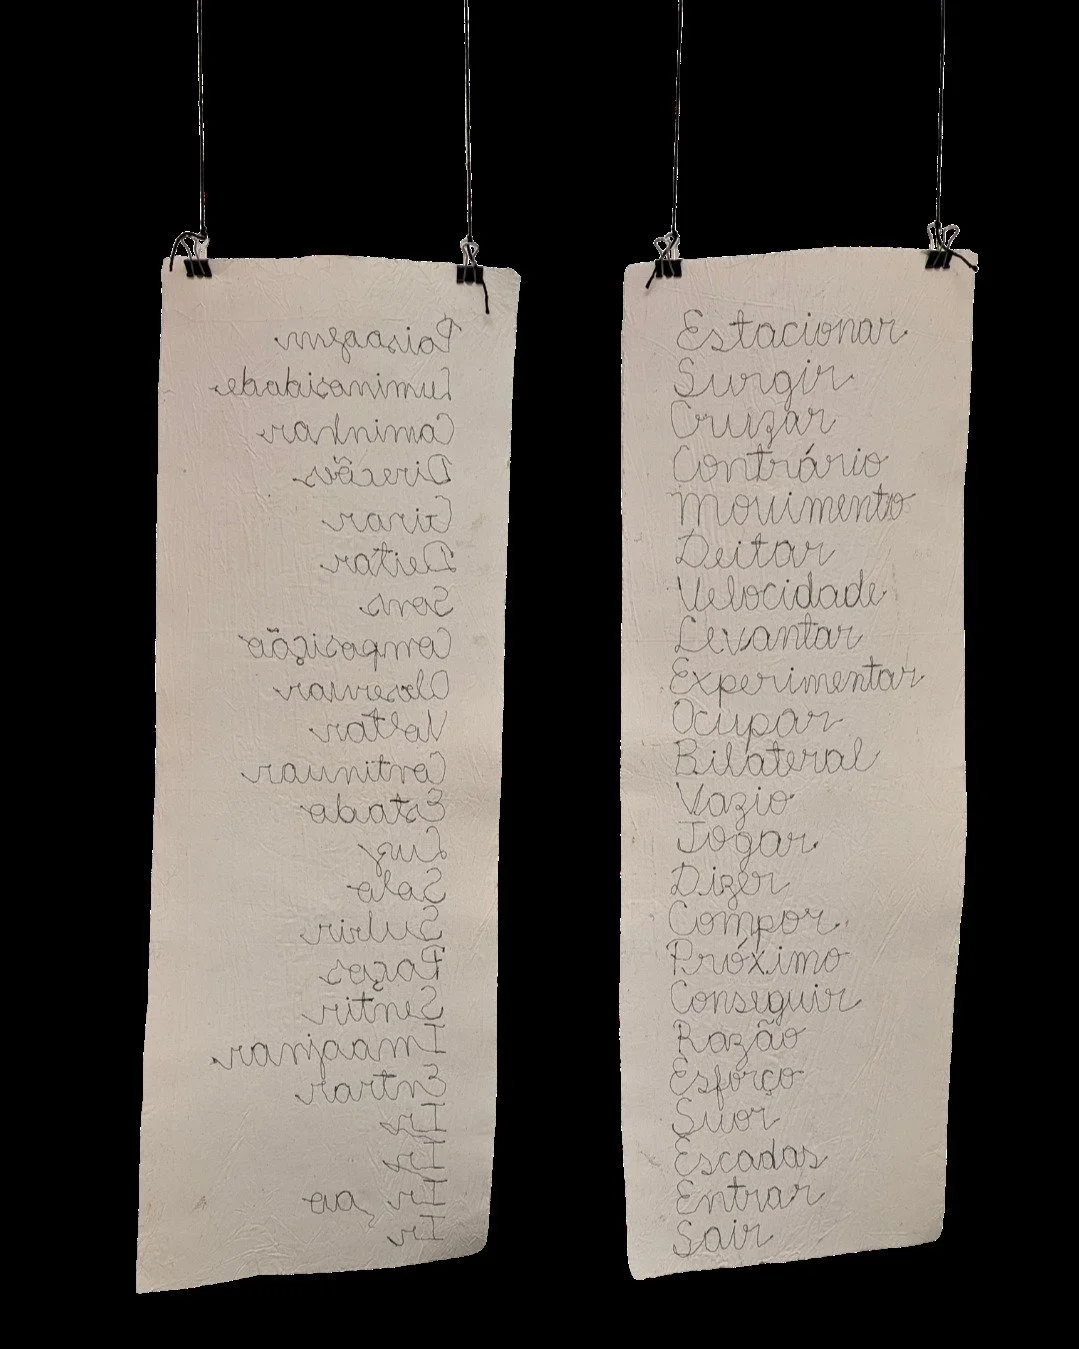 Paisagem
Luminosidade
Caminhar
Direcões
Girar
Deitar
Sons
Composição
Observar
Voltar
Continuar
Estado
Luz
Solo
Subir
Paços
Sentir
Imaginar
Entrar
Ir
Ir
Ir ao
Ir
Estacionar
Surgir
Cruzar
Contrário
Movimento
Deitar
Velocidade
Levantar
Experimentar
Ocupar
Bilateral
Vazio
Jogar
Dizer
Compor
Próximo
Conseguir
Razão
Esforço
Suor
Escadas
Entrar
Sair